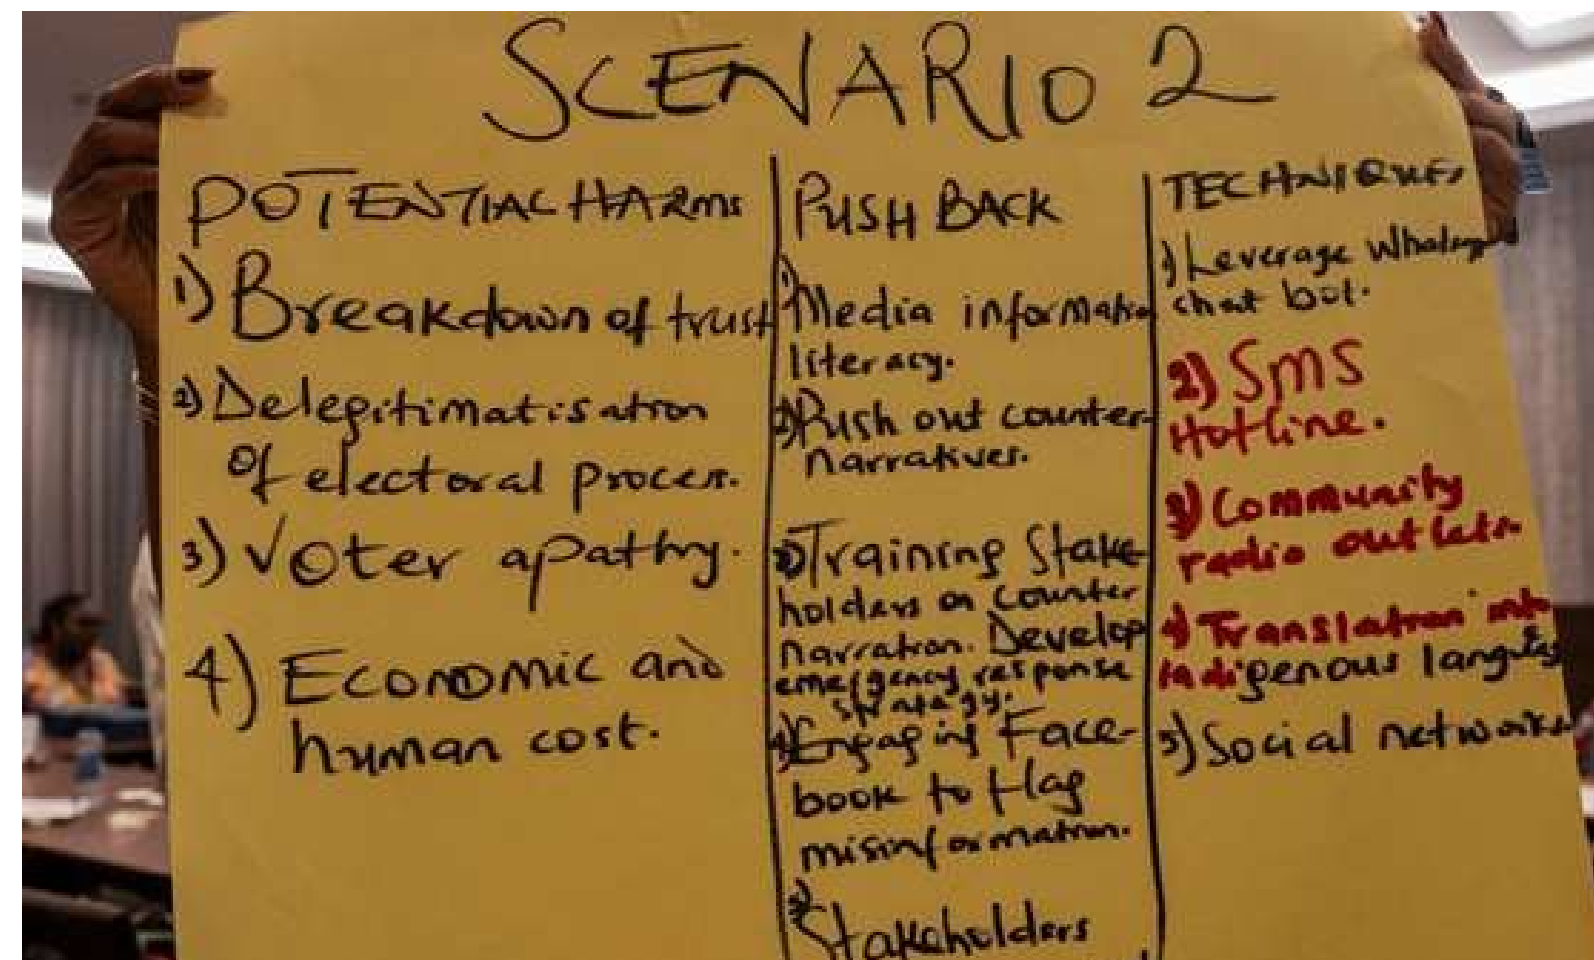 SCENARIO 2
POTENTIAL HARMS
1) Breakdown of trust
2) Delegitimatisation
of electoral process.
3) Voter apathy.
4) Economic and
human cost.
PUSH BACK
1) Media information
literacy.
2) Push out counter-
narratives.
3) Training Stake-
holders on counter
narration. Develop
emergency response
strategy.
4) Engaging Face-
book to flag
misinformation.
5) Stakeholders
TECHNIQUES
1) Leverage Whatsapp
chat bot.
2) SMS
Hotline.
3) Community
radio outlets.
4) Translation into
indigenous languages
5) Social networks